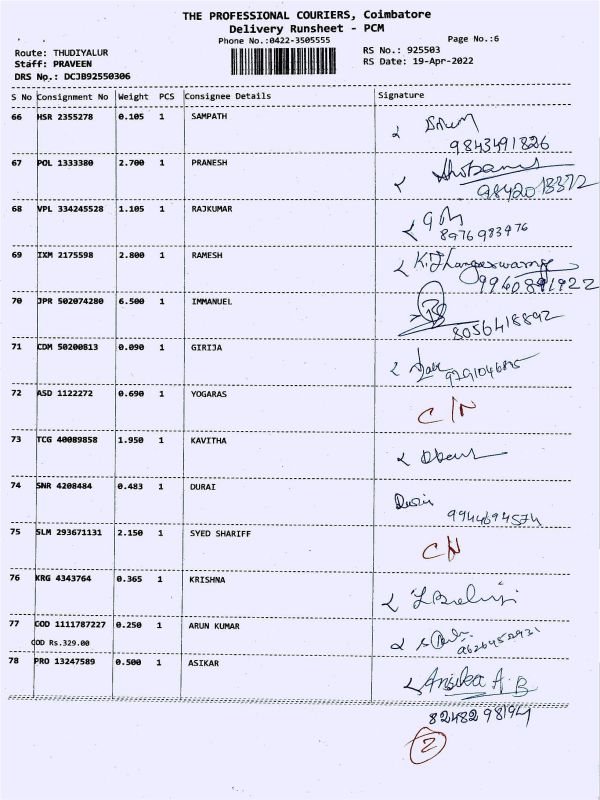 THE PROFESSIONAL COURIERS, Coimbatore
Delivery Runsheet - PCM
Phone No.:0422-3505555 Page No.:6
Route: THUDIYALUR RS No.: 925503
Staff: PRAVEEN RS Date: 19-Apr-2022
DRS No.: DCJB92550306
S No Consignment No Weight PCS Consignee Details Signature
66 HSR 2355278 0.105 1 SAMPATH
9843491826
67 POL 1333380 2.700 1 PRANESH
9842013372
68 VPL 334245528 1.105 1 RAJKUMAR
8976983476
69 IXM 2175598 2.800 1 RAMESH
9940891922
70 JPR 502074280 6.500 1 IMMANUEL
8056418892
71 CDM 50200813 0.090 1 GIRIJA
72 ASD 1122272 0.690 1 YOGARAS
C/N
73 TCG 40089858 1.950 1 KAVITHA
74 SNR 4208484 0.483 1 DURAI
9944694574
75 SLM 293671131 2.150 1 SYED SHARIFF
CN
76 KRG 4343764 0.365 1 KRISHNA
77 COD 1111787227 0.250 1 ARUN KUMAR
COD Rs.329.00
78 PRO 13247589 0.500 1 ASIKAR
8248298194
2